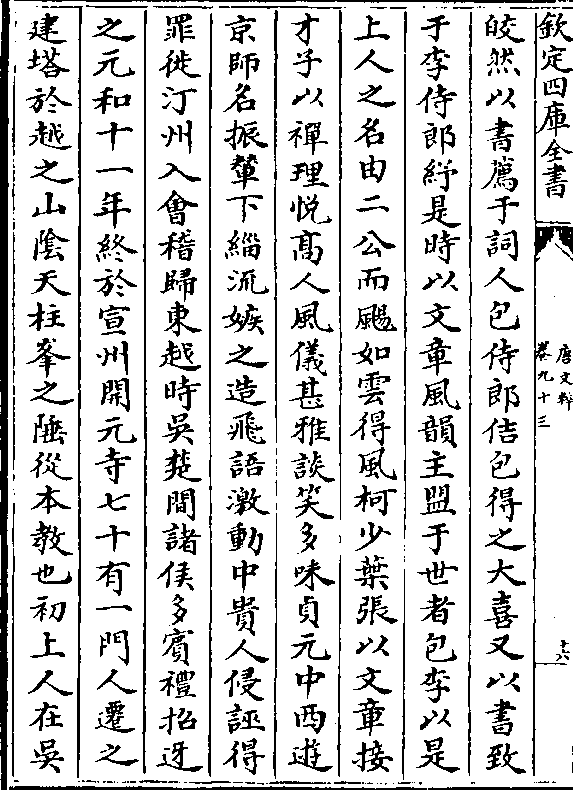 欽定四庫全書
唐文粹
卷九十三
十六
皎然以書薦于詞人包侍郎佶包得之大喜又以書致
于李侍郎紓是時以文章風韻主盟于世者包李以是
上人之名由二公而颺如雲得風柯少葉張以文章接
才子以禪理悦髙人風儀甚雅談笑多味貞元中西遊
京師名振輦下緇流嫉之造飛語激動中貴人侵誣得
罪徙汀州入會稽歸東越時吳楚間諸侯多賓禮招迓
之元和十一年終於宣州開元寺七十有一門人遷之
建塔於越之山陰天柱峯之陲從本教也初上人在吳